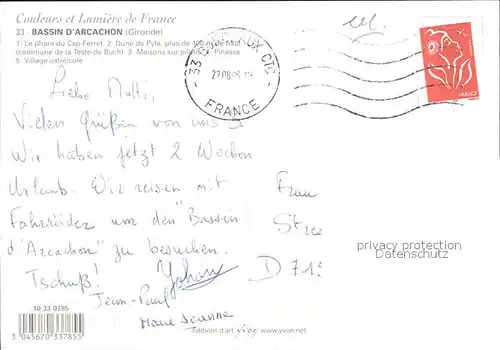 Couleurs et Lumière de France
33 - BASSIN D'ARCACHON (Gironde)
1 Le phare du Cap-Ferret 2 Dune de Pyla, plus de 100 m de haut
(commune de la Teste-de-Buch) 3 Maisons sur pilotis 4 Pinasse
5 Village ostréicole
33 CTC
22.08.06
FRANCE
FRANCE
Liebe Mutti,
Vielen Grüßen von uns 3
Wir haben jetzt 2 Wochen
Urlaub. Wir reisen mit
Fahrräder um den "Bassin
d'Arcachon" zu besuchen.
Tschuß! Yohann
Jean-Paul
Marie Jeanne
Frau
Stree
D 71
privacy protection
Datenschutz
10 33 0785
3 045670 337855
Editions d'art yvon www.yvon.net